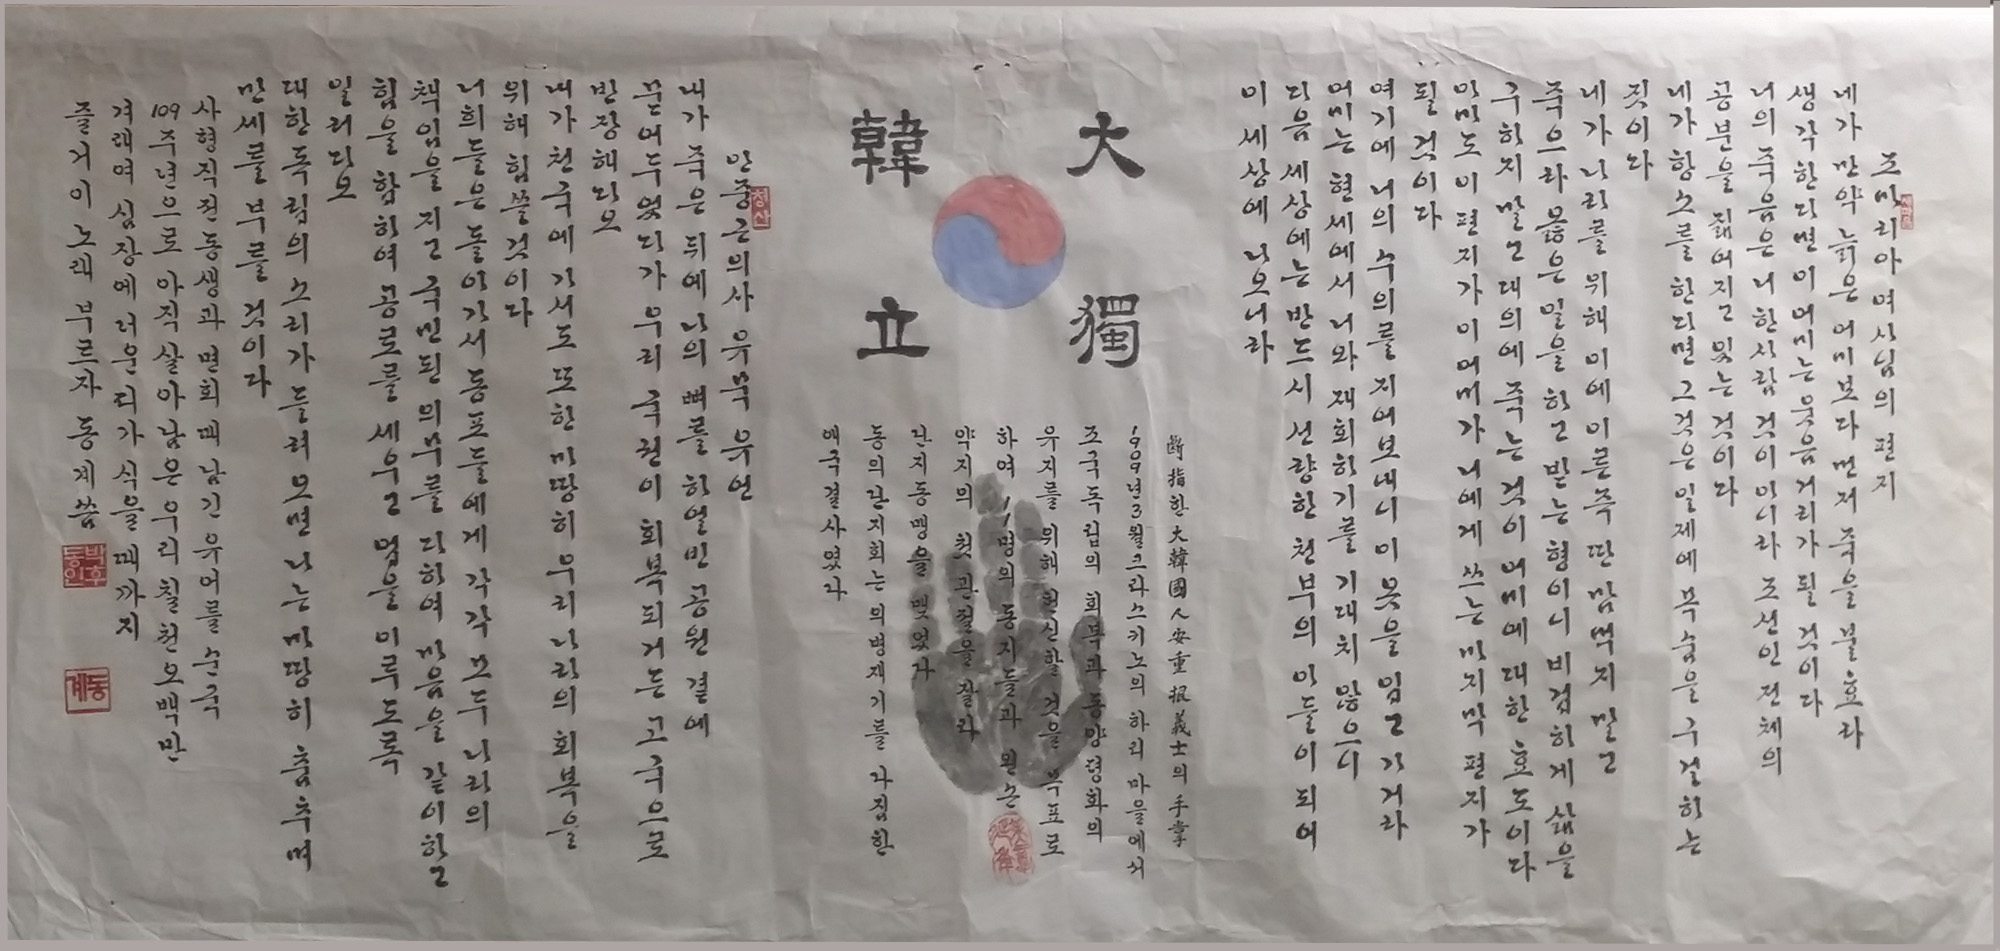 조마리아 여사님의 편지
네가 만약 늙은 어미보다 먼저 죽을 불효라
생각한다면 이 어미는 웃음거리가 될 것이다
너의 죽음은 너 한사람 것이 아니라 조선인 전체의
공분을 짊어지고 있는 것이다
네가 항소를 한다면 그것은 일제에 목숨을 구걸하는
짓이다
네가 나라를 위해 이에 이른즉 딴 맘 먹지 말고
죽으라 옳은 일을 하고 받는 형이니 비겁하게 삶을
구하지 말고 대의에 죽는 것이 어미에 대한 효도이다
아마도 이 편지가 이 어미가 너에게 쓰는 마지막 편지가
될 것이다
여기에 너의 수의를 지어보내니 이 옷을 입고 가거라
어미는 현세에서 너와 재회하기를 기대치 않으니
다음 세상에는 반드시 선량한 천부의 아들이 되어
이 세상에 나오너라
大韓
獨立
斷指한 大韓國人 安重根義士의 手掌
1909년 3월 크라스키노의 하리 마을에서
조국독립의 회복과 동양평화의
유지를 위해 헌신할 것을 목표로
하여 11명의 동지들과 왼손
약지의 첫 관절을 잘라
단지동맹을 맺었다
동의단지회는 의병재기를 다짐한
애국결사였다
청산
안중근의사 유묵 유언
내가 죽은 뒤에 나의 뼈를 하얼빈 공원 곁에
묻어두었다가 우리 국권이 회복되거든 고국으로
반장해다오
내가 천국에 가서도 또한 마땅히 우리나라의 회복을
위해 힘쓸것이다
너희들은 돌아가서 동포들에게 각각 모두 나라의
책임을 지고 국민된 의무를 다하여 마음을 같이하고
힘을 합하여 공로를 세우고 업을 이루도록
일러다오
대한독립의 소리가 들려오면 나는 마땅히 춤추며
만세를 부를 것이다
사현직전 동생과 면회때 남긴 유어를 순국
109주년으로 아직 살아남은 우리 칠천오백만
겨레여 심장에 더운피가 식을 때까지
즐거이 노래 부르자 동계씀
박후동인
동계